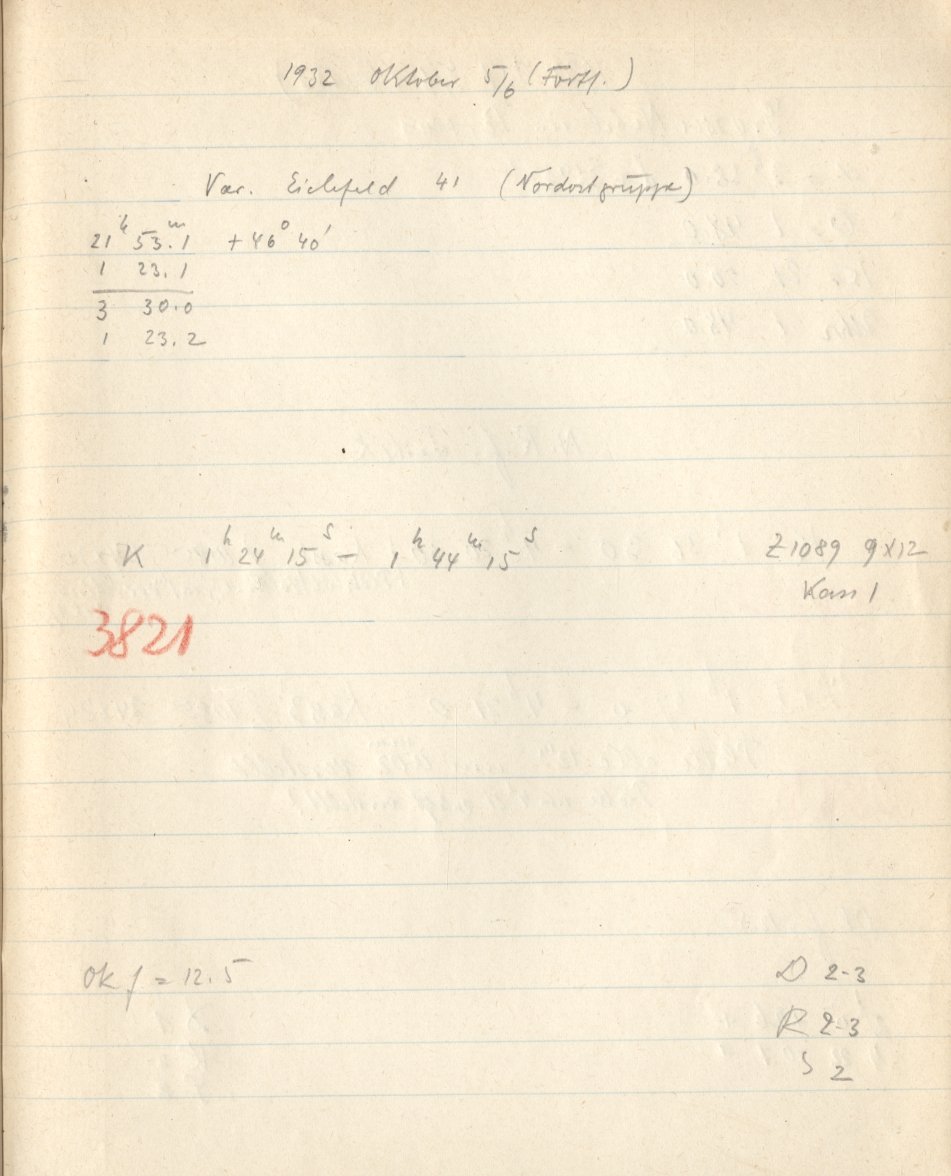 1932 Oktober 5/6 (Forts.)
Var. Eichfeld 41 (Nordostgruppe)
21ʰ 53.ᵐ1 +46° 40'
1 23.1
3 30.0
1 23.2
K 1ʰ 24ᵐ 15ˢ – 1ʰ 44ᵐ 15ˢ Z1089 9x12
Kass 1
3821
OK f = 12.5 D 2-3
R 2-3
S 2